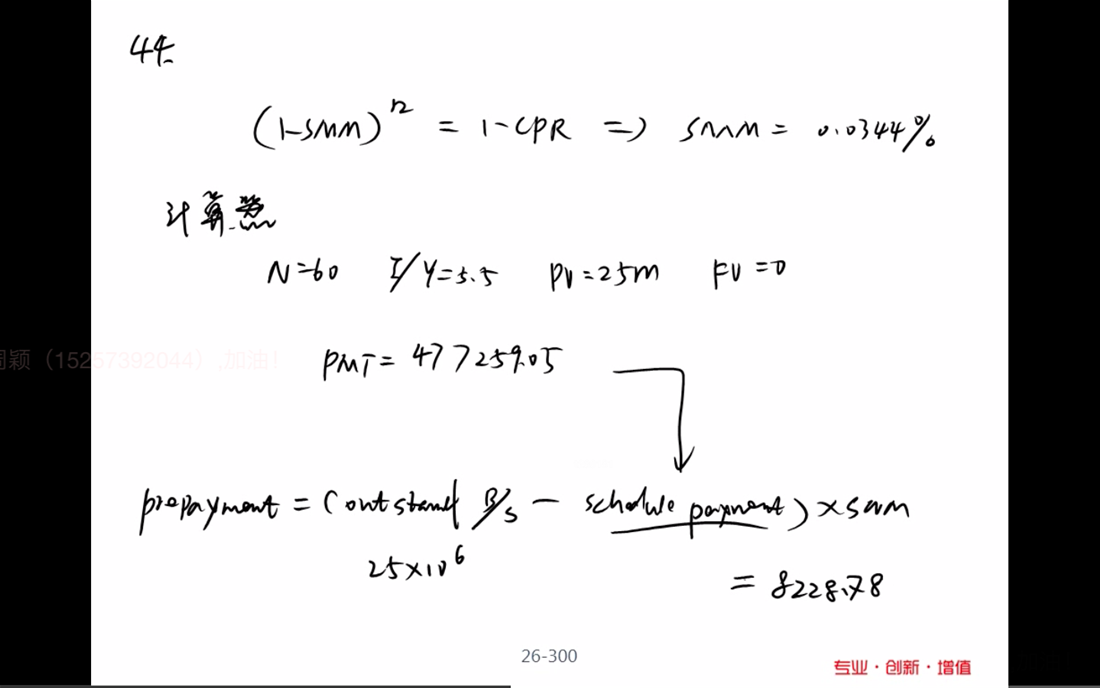 44.
(1-SMM)^12 = 1-CPR => SMM = 0.0344%
计算器
N=60 I/Y=5.5 PV=25m FV=0
周颖（15257392044）,加油！
PMT= 477259.05
prepayment = (outstand B/S - schedule payment) × SMM
25×10^6
= 8228.78
26-300
专业·创新·增值